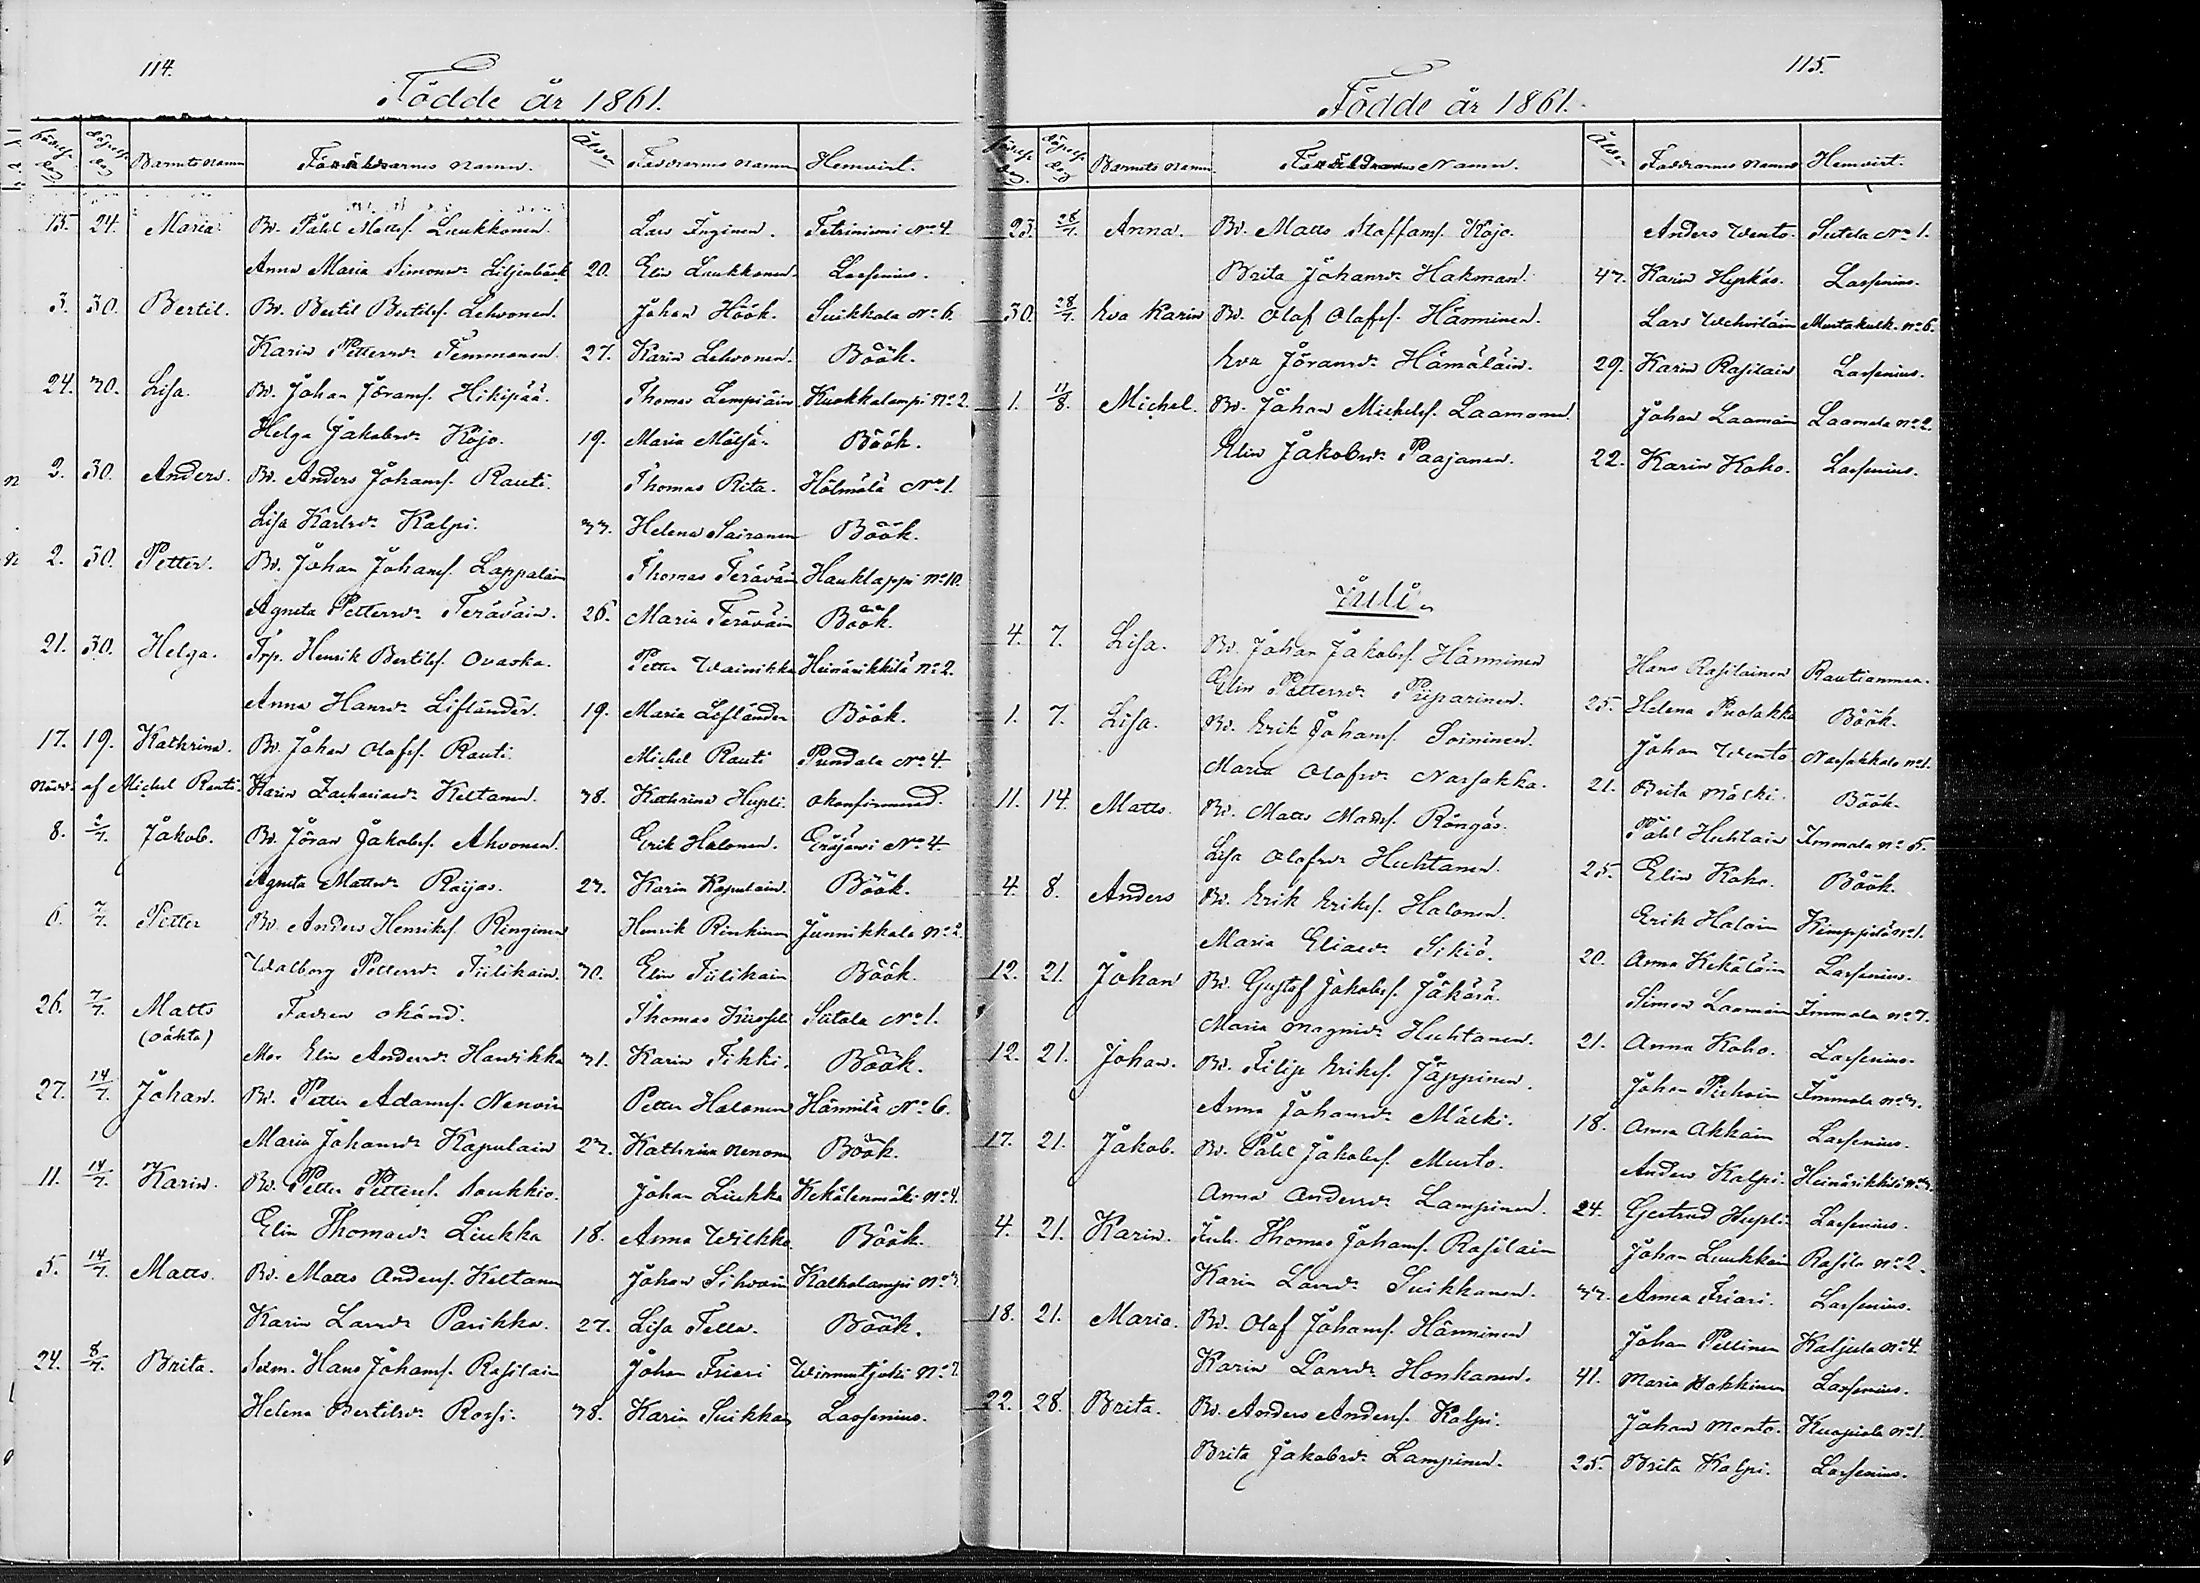 114.
Födde år 1861.
födelse dag döpelse dag Barnets namn Föräldrarnes namn. Ålder Faddrarnes namn Hemvist.
15. 24. Maria Bd. Påhl Mattss. Luukkonen. Lars Inginen. Tetriniemi No 4.
Anna Maria Simonsdr Liljenbäck 20. Elin Luukkonen. Lassenius.
3. 30. Bertil. Bd. Bertil Bertilss. Lehvonen. Johan Höök. Suikkala No 6.
Karin Pettersdr Temmonen. 27. Karin Lehvonen. Böök.
24. 30. Lisa. Bd. Johan Jöranss. Hikipää. Thomas Lempiäin Kuokkalampi No 2.
Helga Jakobsdr Kojo. 19. Maria Mälsä. Böök.
2. 30. Anders. Bd. Anders Johanss. Rauti. Thomas Rita. Hölmälä No 1.
Lisa Karlsdr Kalpi. 33. Helena Sairanen Böök.
2. 30. Petter. Bd. Johan Johanss. Lappalain Thomas Teräväin Hauklappi No 10.
Agneta Pettersdr Teräväin. 26. Maria Teräväin Böök.
21. 30. Helga. Trp. Henrik Bertilss. Ovaska. Petter Wainikka Heinärikkilä No 2.
Anna Hansdr Lifländer. 19. Maria Lifländer Böök.
17. 19. Kathrina. Bd. Johan Olafss. Rauti. Michel Rauti Pundala No 4.
Nöddr. af Michel Rauti. Karin Zachariasdr Keltanen. 38. Kathrina Hupli. okonfirmerad.
8. 2/7. Jakob. Bd. Jöran Jakobss. Ahvonen. Erik Halonen. Eräjärvi No 4.
Agneta Mattsdr Raijas. 23. Karin Kapulain. Böök.
6. 7/7. Petter Bd. Anders Henrikss. Ringinen Henrik Rinkinen Junnikkala No 2.
Walborg Pettersdr Tiilikain. 30. Elin Tiilikain Böök.
26. 7/7. Matts (oäkta) Fadren okänd. Thomas Kuossi Sutela No 1.
Mor Elin Andersdr Hanrikka 31. Karin Tikki. Böök.
27. 14/7. Johan. Bd. Petter Adamss. Nenoin Petter Halonen Hännilä No 6.
Maria Johansdr Kapulain 23. Kathrina Nenonen Böök.
11. 14/7. Karin. Bd. Petter Petterss. Soukkio. Johan Liukka Kekälenmäki No 4.
Elin Thomasdr Liukka 18. Anna Wilkka Böök.
5. 14/7. Matts. Bd. Matts Anderss. Keltanen Johan Sihvoin Kalkolampi No 3
Karin Larsdr Parikka. 27. Lisa Tella. Böök.
24. 8/7. Brita. Sedm. Hans Johanss. Rasilain Johan Friari Wirmutjoki No 7.
Helena Bertilsdr Rossi. 38. Karin Suikkan Lassenius.
115.
Födde år 1861.
födelse dag. döpelse dag Barnets namn. Föräldrarnes Namn. Ålder Faddrarnes namn Hemvist.
23. 28/7. Anna. Bd. Matts Staffanss. Kojo. Anders Wento. Sutela No 1.
Brita Johansdr Hakman. 43. Karin Hyrkäs. Lassenius.
30. 28/7. Eva Karin Bd. Olof Olafss. Hänninen. Lars Wehviläin Mustakulk. No 6.
Eva Jöransdr Hämäläin. 29. Karin Rasilain Lassenius.
1. 11/8. Michel. Bd. Johan Michelss. Laamanen Johan Laamain Laamala No 2.
Elin Jakobsdr Paajanen. 22. Karin Koho. Lassenius.
Juli.
4. 7. Lisa. Bd. Johan Jakobss. Hänninen Hans Rasilainen Rautianmaa.
Elin Pettersdr Piiparinen. 25. Helena Puolakka Böök.
1. 7. Lisa. Bd. Erik Johanss. Soininen. Johan Wento Narsakkala No 1.
Maria Olofsdr Narsakka. 21. Brita Mälki. Böök.
11. 14. Matts. Bd. Matts Mattss. Röngäs. Påhl Huhtain Immala No 5.
Lisa Olofsdr Huhtanen. 25. Elin Koho. Böök.
4. 8. Anders Bd. Erik Erikss. Halonen. Erik Haloin Kemppilä No 1.
Maria Eliasdr Sikiö. 20. Anna Kekäläin Lassenius.
12. 21. Johan Bd. Gustaf Jakobss. Jäkärä. Simon Laamain Immala No 7.
Maria Magnidr Huhtanen. 21. Anna Koho. Lassenius.
12. 21. Johan. Bd. Filip Erikss. Jäppinen. Johan Pulvoin Immala No 3.
Anna Johansdr Mälki. 18. Anna Akkain Lassenius.
17. 21. Jakob. Bd. Påhl Jakobss. Musto. Anders Kalpi. Heinärikkilä No 3.
Anna Andersdr Lampinen. 24. Gertrud Hupli. Lassenius.
4. 21. Karin. Inh. Thomas Johanss. Rasilain Johan Luukkain Rasila No 2.
Karin Larsdr Suikkanen. 33. Anna Friari. Lassenius.
18. 21. Maria. Bd. Olof Johanss. Hänninen Johan Pellinen Kaljula No 4.
Karin Larsdr Honkanen. 41. Maria Hokkinen Lassenius.
22. 28. Brita. Bd. Anders Anderss. Kalpi. Johan Monto. Kuapiala No 1.
Brita Jakobsdr Lampinen. 25. Brita Kalpi. Lassenius.